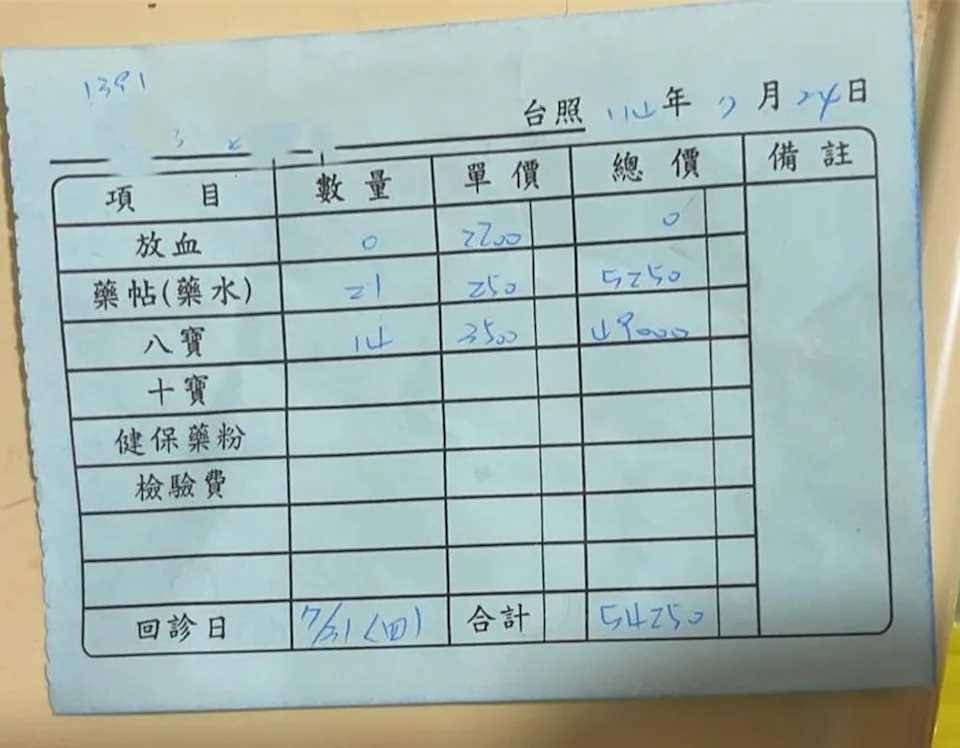 1391
台照 114年 7月 24日
項目 數量 單價 總價 備註
放血 0 2200 0
藥帖(藥水) 21 250 5250
八寶 14 3500 49000
十寶
健保藥粉
檢驗費
回診日 7/31(四) 合計 54250